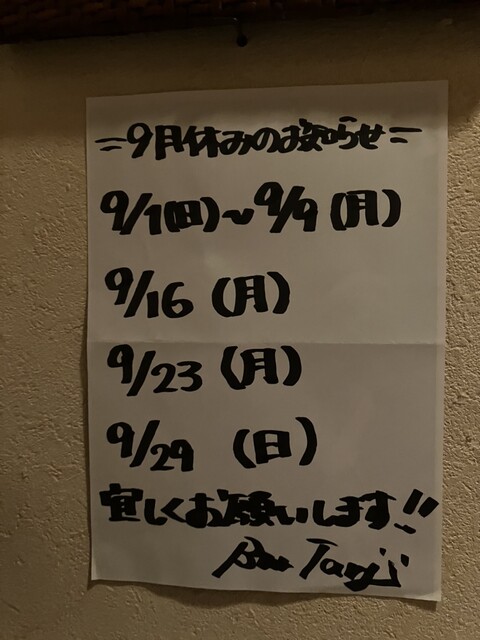 =9月休みのお知らせ=
9/1(日)~9/9(月)
9/16(月)
9/23(月)
9/29(日)
宜しくお願いします!!
Bar Tanji